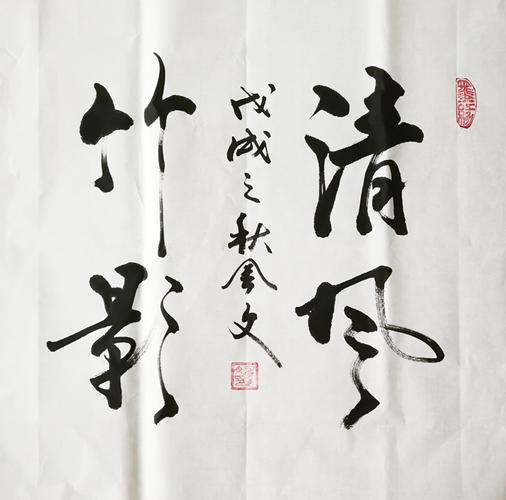 清风
竹影
戊戌之秋金文